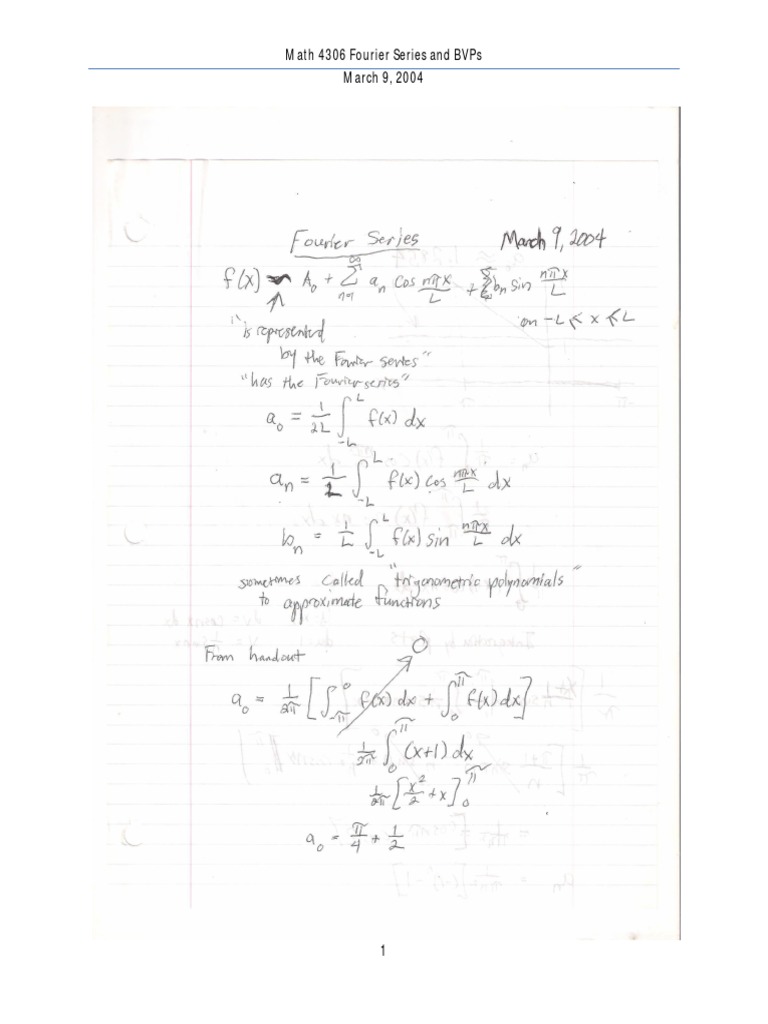 Math 4306 Fourier Series and BVPs
March 9, 2004
Fourier Series March 9, 2004
f(x) ~ A₀ + ∑_{n=1}^{∞} aₙ cos nπx/L + ∑ bₙ sin nπx/L
on -L ≤ x ≤ L
"is represented
by the Fourier series"
"has the Fourier series"
a₀ = 1/2L ∫_{-L}^{L} f(x) dx
aₙ = 1/L ∫_{-L}^{L} f(x) cos nπx/L dx
bₙ = 1/L ∫_{-L}^{L} f(x) sin nπx/L dx
sometimes called "trigonometric polynomials"
to approximate functions
From handout 0
a₀ = 1/2π [∫_{-π}^{0} f(x) dx + ∫_{0}^{π} f(x) dx]
1/2π ∫_{0}^{π} (x+1) dx
1/2π [x²/2 + x]_{0}^{π}
a₀ = π/4 + 1/2
1